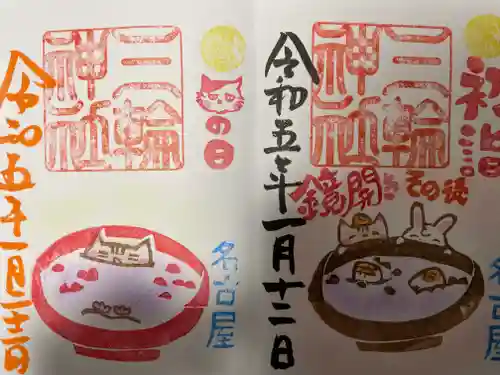 初詣
三輪
神社
鏡開き その後
令和五年一月十二日
名古屋
三輪
神社
の日
令和五年一月二十二日
名古屋